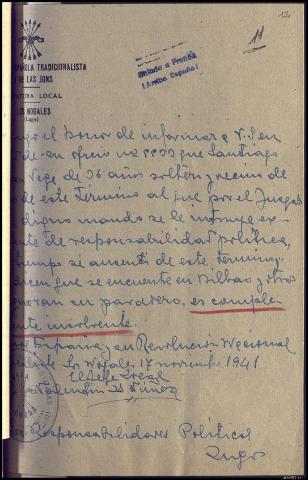 12
11
ESPAÑOLA TRADICIONALISTA
DE LAS JONS
JEFATURA LOCAL
LOS NOGALES
(Lugo)
Saludo a Franco
¡Arriba España!
el honor de informar a V. S. en
de su oficio nº que Santiago
Vega de 26 años soltero vecino de
de este Término al que por el Juzgado
digno mando se le instruye ex-
de responsabilidad política,
tiempo se ausentó de este termino,
dicen que se encuentra en Bilbao y otros
ignoran su paradero, es comple-
insolvente.
España y su Revolución Nacional
Los Nogales 17 noviembre 1941
El Jefe Local
Núñez
Responsabilidades Políticas
Lugo